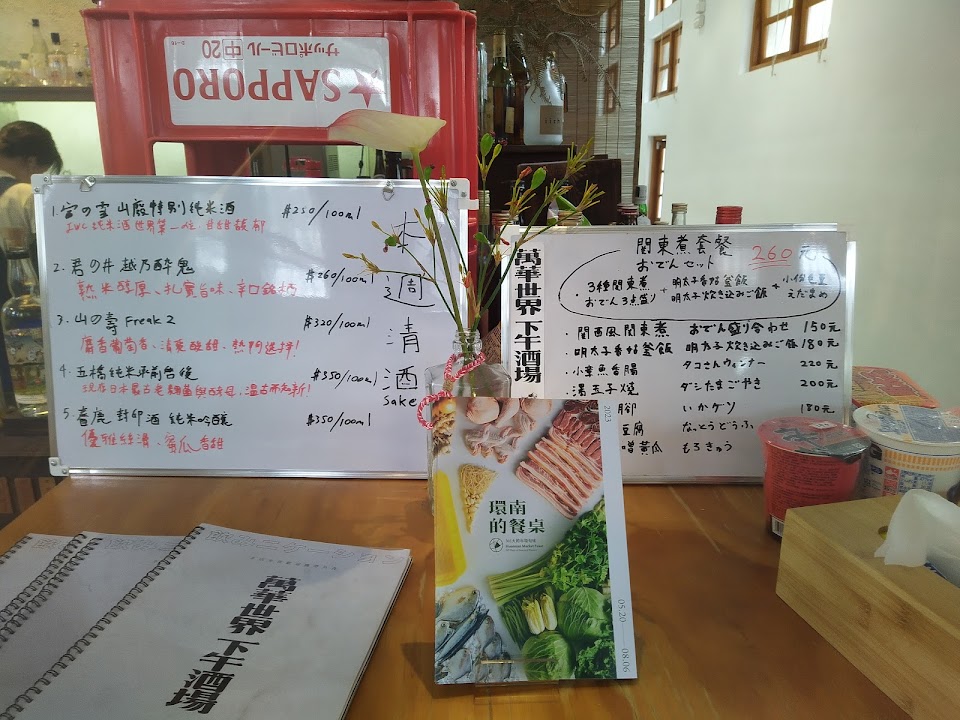 サッポロビール 中 20
SAPPORO
1. 宮の雪 山廃特別純米酒 #250/100ml
IWC 純米酒世界第一位 甘甜馥郁
2. 君の井 越乃酔鬼 #260/100ml
熟米醇厚、扎實旨味、辛口銘柄
3. 山の壽 Freak 2 #320/100ml
麝香葡萄香、清爽酸甜、熱門選擇!
4. 五橋純米 #350/100ml
現存日本最古老麴菌與酵母、溫古而知新!
5. 春鹿 封印酒 純米吟醸 #350/100ml
優雅絲滑、蜜瓜香甜
本
週
清
酒
sake
萬華世界 下午酒場
関東煮套餐 260元
おでんセット
3種関東煮 + 明太子香菇釜飯 +
おでん3点盛り 明太子炊き込みご飯 えだまめ
・関西風関東煮 おでん盛り合わせ 150元
・明太子香菇釜飯 明太子炊き込みご飯 180元
・小章魚香腸 タコさんウィンナー 220元
・湯玉子燒 ダシたまごやき 200元
腳 いかゲソ 180元
豆腐 なっとうどうふ
噌黄瓜 もろきゅう
2023
環南
的餐桌
05.20 — 08.06
萬華世界 下午酒場